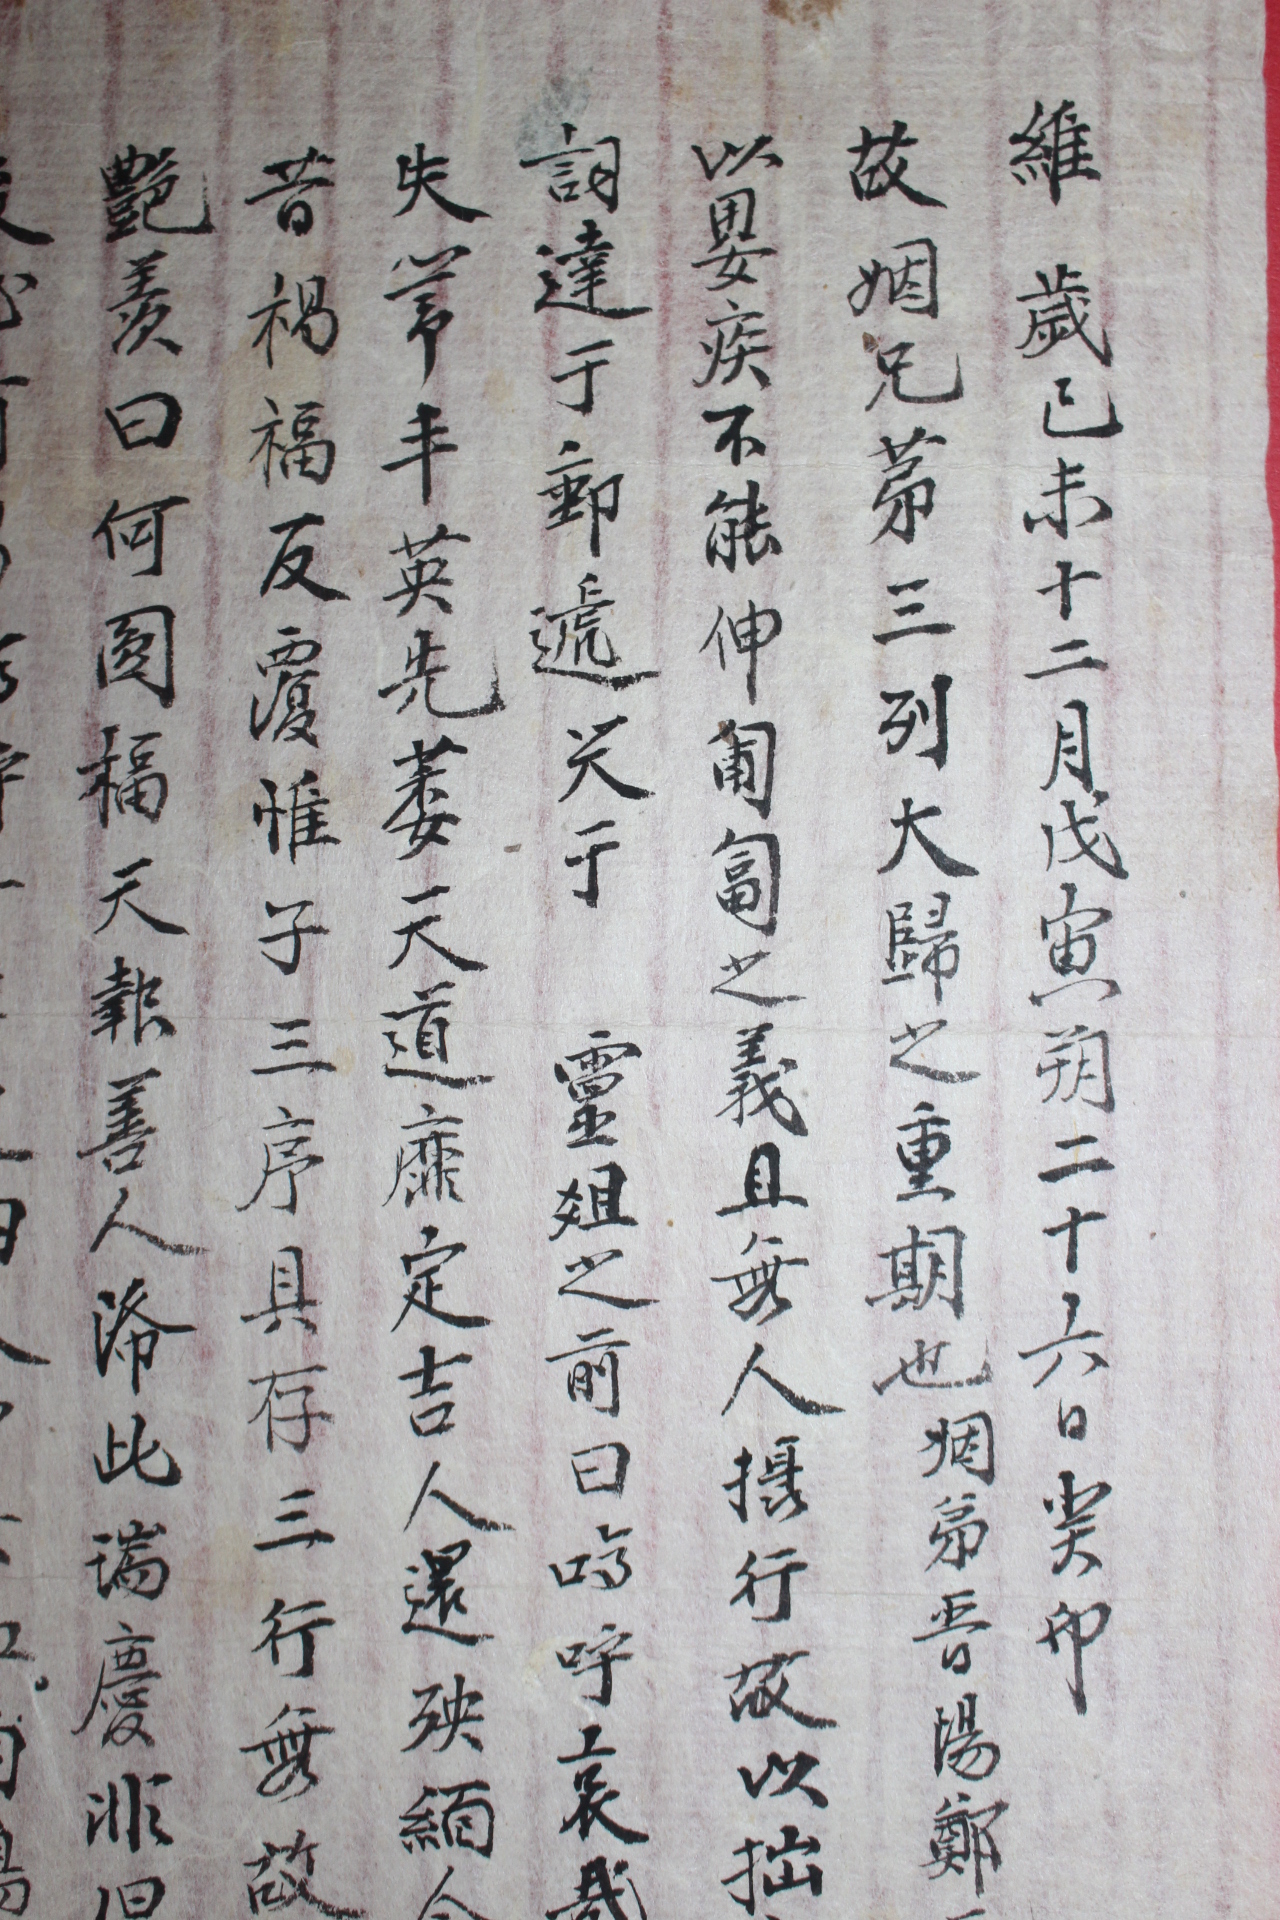 維 歲己未十二月戊寅朔二十六日癸卯
故姻兄苐三列大歸之重期也姻弟晋陽鄭
以嬰疾不能伸匍匐之義且無人攝行故以拙
詞達于郵遞哭于 靈俎之前曰嗚呼哀哉
失 丰英先萎天道靡定吉人還殃緬
昔禍福反覆惟子三序具存三行無故
艶羡曰何圓福天報善人 此瑞慶非